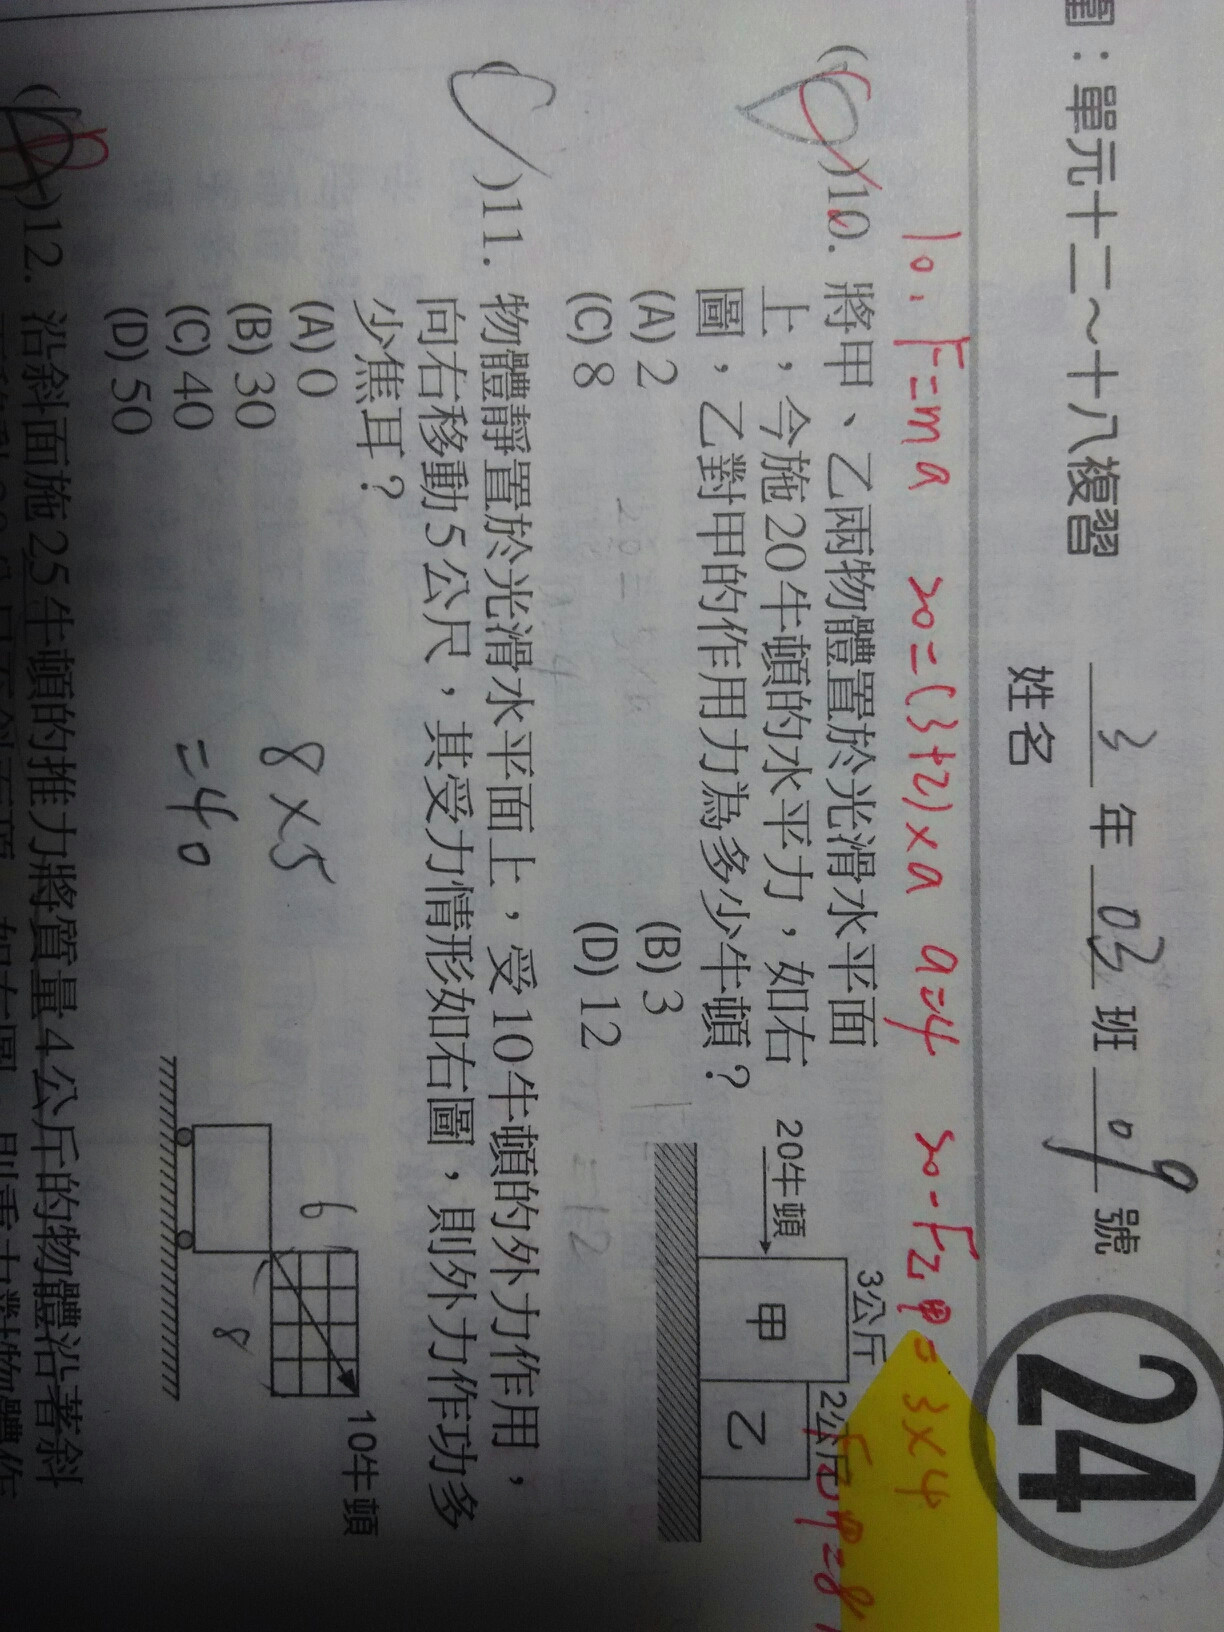 圍：單元十二～十八複習
3年03班09號
姓名
24
10. F=ma 20=(3+2)×a a=4 20-F乙甲=3×4
F乙甲=8
( C )10. 將甲、乙兩物體置於光滑水平面
上，今施20牛頓的水平力，如右
圖，乙對甲的作用力為多少牛頓？
(A) 2 (B) 3
(C) 8 (D) 12
20牛頓
3公斤
甲
2公斤
乙
=12
( C )11. 物體靜置於光滑水平面上，受10牛頓的外力作用，
向右移動5公尺，其受力情形如右圖，則外力作功多
少焦耳？
(A) 0
(B) 30
(C) 40
(D) 50
8×5
=40
6
8
10牛頓
( B )12. 沿斜面施25牛頓的推力將質量4公斤的物體沿著斜